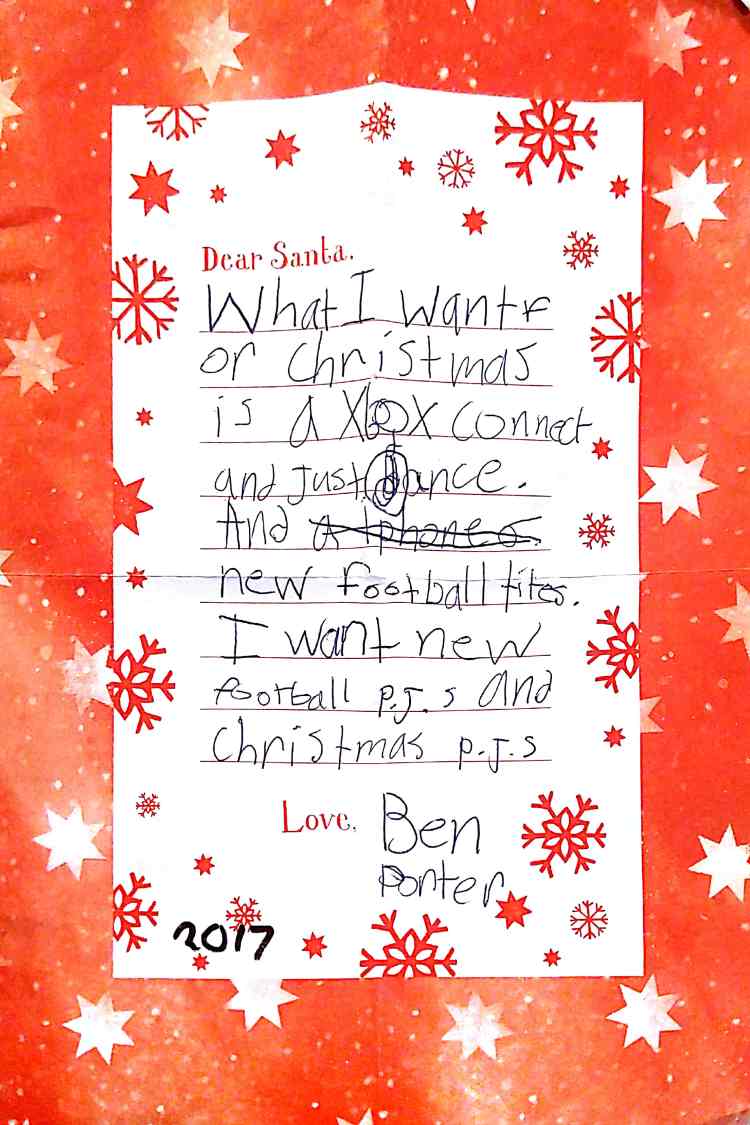 Dear Santa.
What I want f
or christmas
is a Xbox connect
and just dance.
And a phone
new football tites.
I want new
football p.J.s and
christmas p.J.s
Love, Ben
Porter
2017